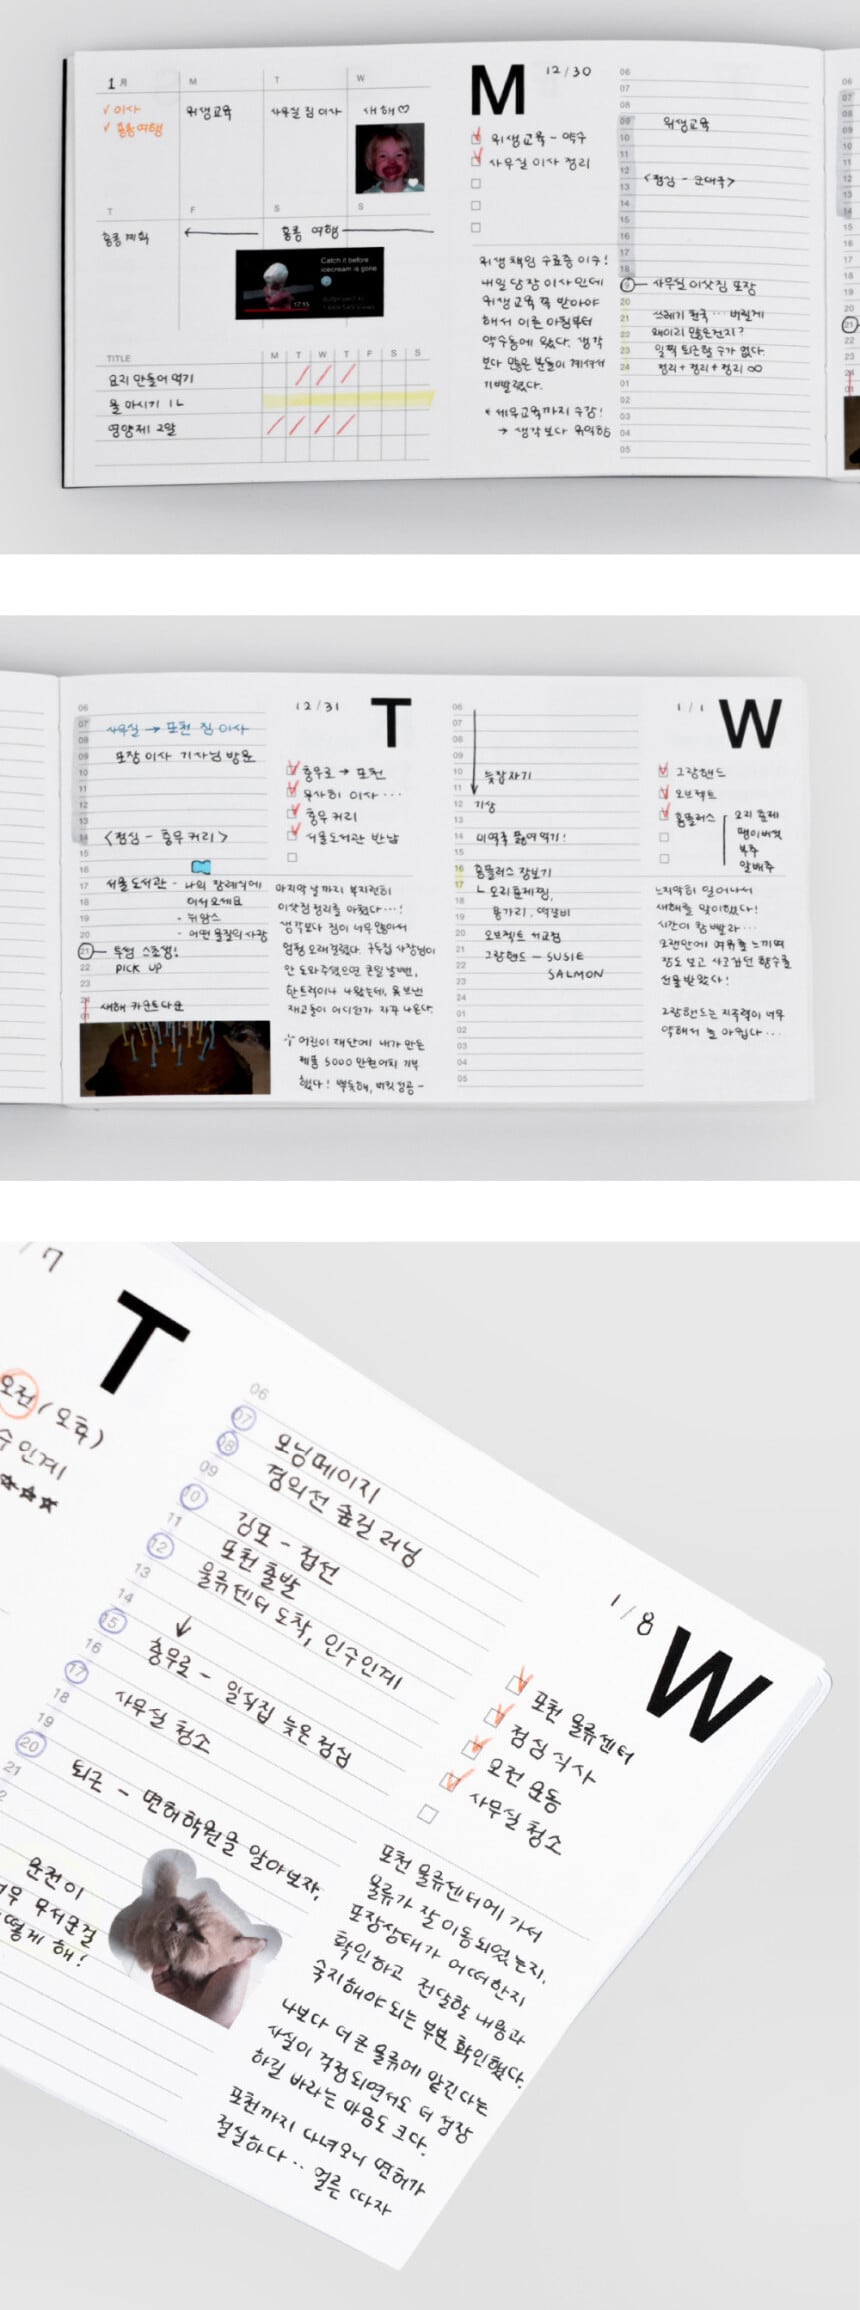 1月
M
T
W
✓ 이사
✓ 홍콩여행
위생교육
사무실 짐 이사
새해♡
T
F
S
S
홍콩 계획
홍콩 여행
Catch it before
icecream is gone
17:15
TITLE
M T W T F S S
요리 만들어 먹기
물 마시기 1L
영양제 2알
M
12/30
위생교육 - 약수
사무실 이사 정리
위생 책임 수료증 이수!
내일 당장 이사인데
위생교육 꼭 받아야
해서 이른 아침부터
약수동에 왔다. 생각
보다 많은 분들이 계셔서
기빨렸다.
* 세무교육까지 수강!
→ 생각보다 유익함
06
07
08
09 위생교육
10
11
12 <점심 - 순대국>
13
14
15
16
17
18
19 사무실 이삿짐 포장
20
21 쓰레기 천국… 버릴게
22 왜이리 많은건지?
23 일찍 퇴근할 수가 없다.
24 정리+정리+정리 ∞
01
02
03
04
05
06
07 사무실 → 포천 짐 이사
08
09 포장이사 기사님 방문
10
11
12
13
14 <점심 - 충무 커리>
15
16
17 서울 도서관 - 나의 장례식에
18 어서오세요
19 - 뉘앙스
20 - 어떤 물질의 사랑
21 투썸 스초생!
22 PICK UP
23
24 새해 카운트다운
12/31
T
충무로 → 포천
무사히 이사…
충무 커리
서울도서관 반납
마지막 날까지 부지런히
이삿짐 정리를 마쳤다…!
생각보다 짐이 너무 많아서
엄청 오래 걸렸다. 구두집 사장님이
안 도와주셨으면 큰일 날뻔,
한트럭이나 나왔는데, 못보낸
재고들이 어디선가 자꾸 나온다.
어린이 재단에 내가 만든
제품 5000만원어치 기부
했다! 뿌듯해, 버킷 성공-
06
07
08
09
10
11 늦잠자기
12 기상
13
14 미역국 끓여먹기!
15
16 홈플러스 장보기
17 ㄴ 오리훈제찜,
18
19 용가리, 떡갈비
20 오브젝트 서교점
21 그랑핸드 - SUSIE
22 SALMON
23
24
01
02
03
04
05
1/1
W
그랑핸드
오브젝트
홈플러스
오리 훈제
팽이버섯
부추
알배추
느지막히 일어나서
새해를 맞이했다!
시간이 참 빨라…
오랜만에 여유를 느끼며
장도 보고 사고싶던 향수를
선물 받았다!
그랑핸드는 지속력이 너무
약해서 늘 아쉽다…
/7
T
오전 (오후)
수인계
★★★
06
07 모닝페이지
08 경의선 숲길 러닝
09
10 김포 - 접선
11 포천 출발
12 물류센터 도착, 인수인계
13
14 ↓
15 충무로 - 일식집 늦은 점심
16
17 사무실 청소
18
19
20 퇴근 - 면허학원을 알아보자,
21
2
운전이
너무 무서운걸
어떻게 해!
1/8
W
포천 물류센터
점심 식사
오전 운동
사무실 청소
포천 물류센터에 가서
물류가 잘 이동되었는지,
포장상태가 어떠한지
확인하고 전달할 내용과
숙지해야 되는 부분 확인했다.
나보다 더 큰 물류에 맡긴다는
사실이 걱정되면서도 더 성장
하길 바라는 마음도 크다.
포천까지 다녀오니 면허가
절실하다.. 얼른 따자